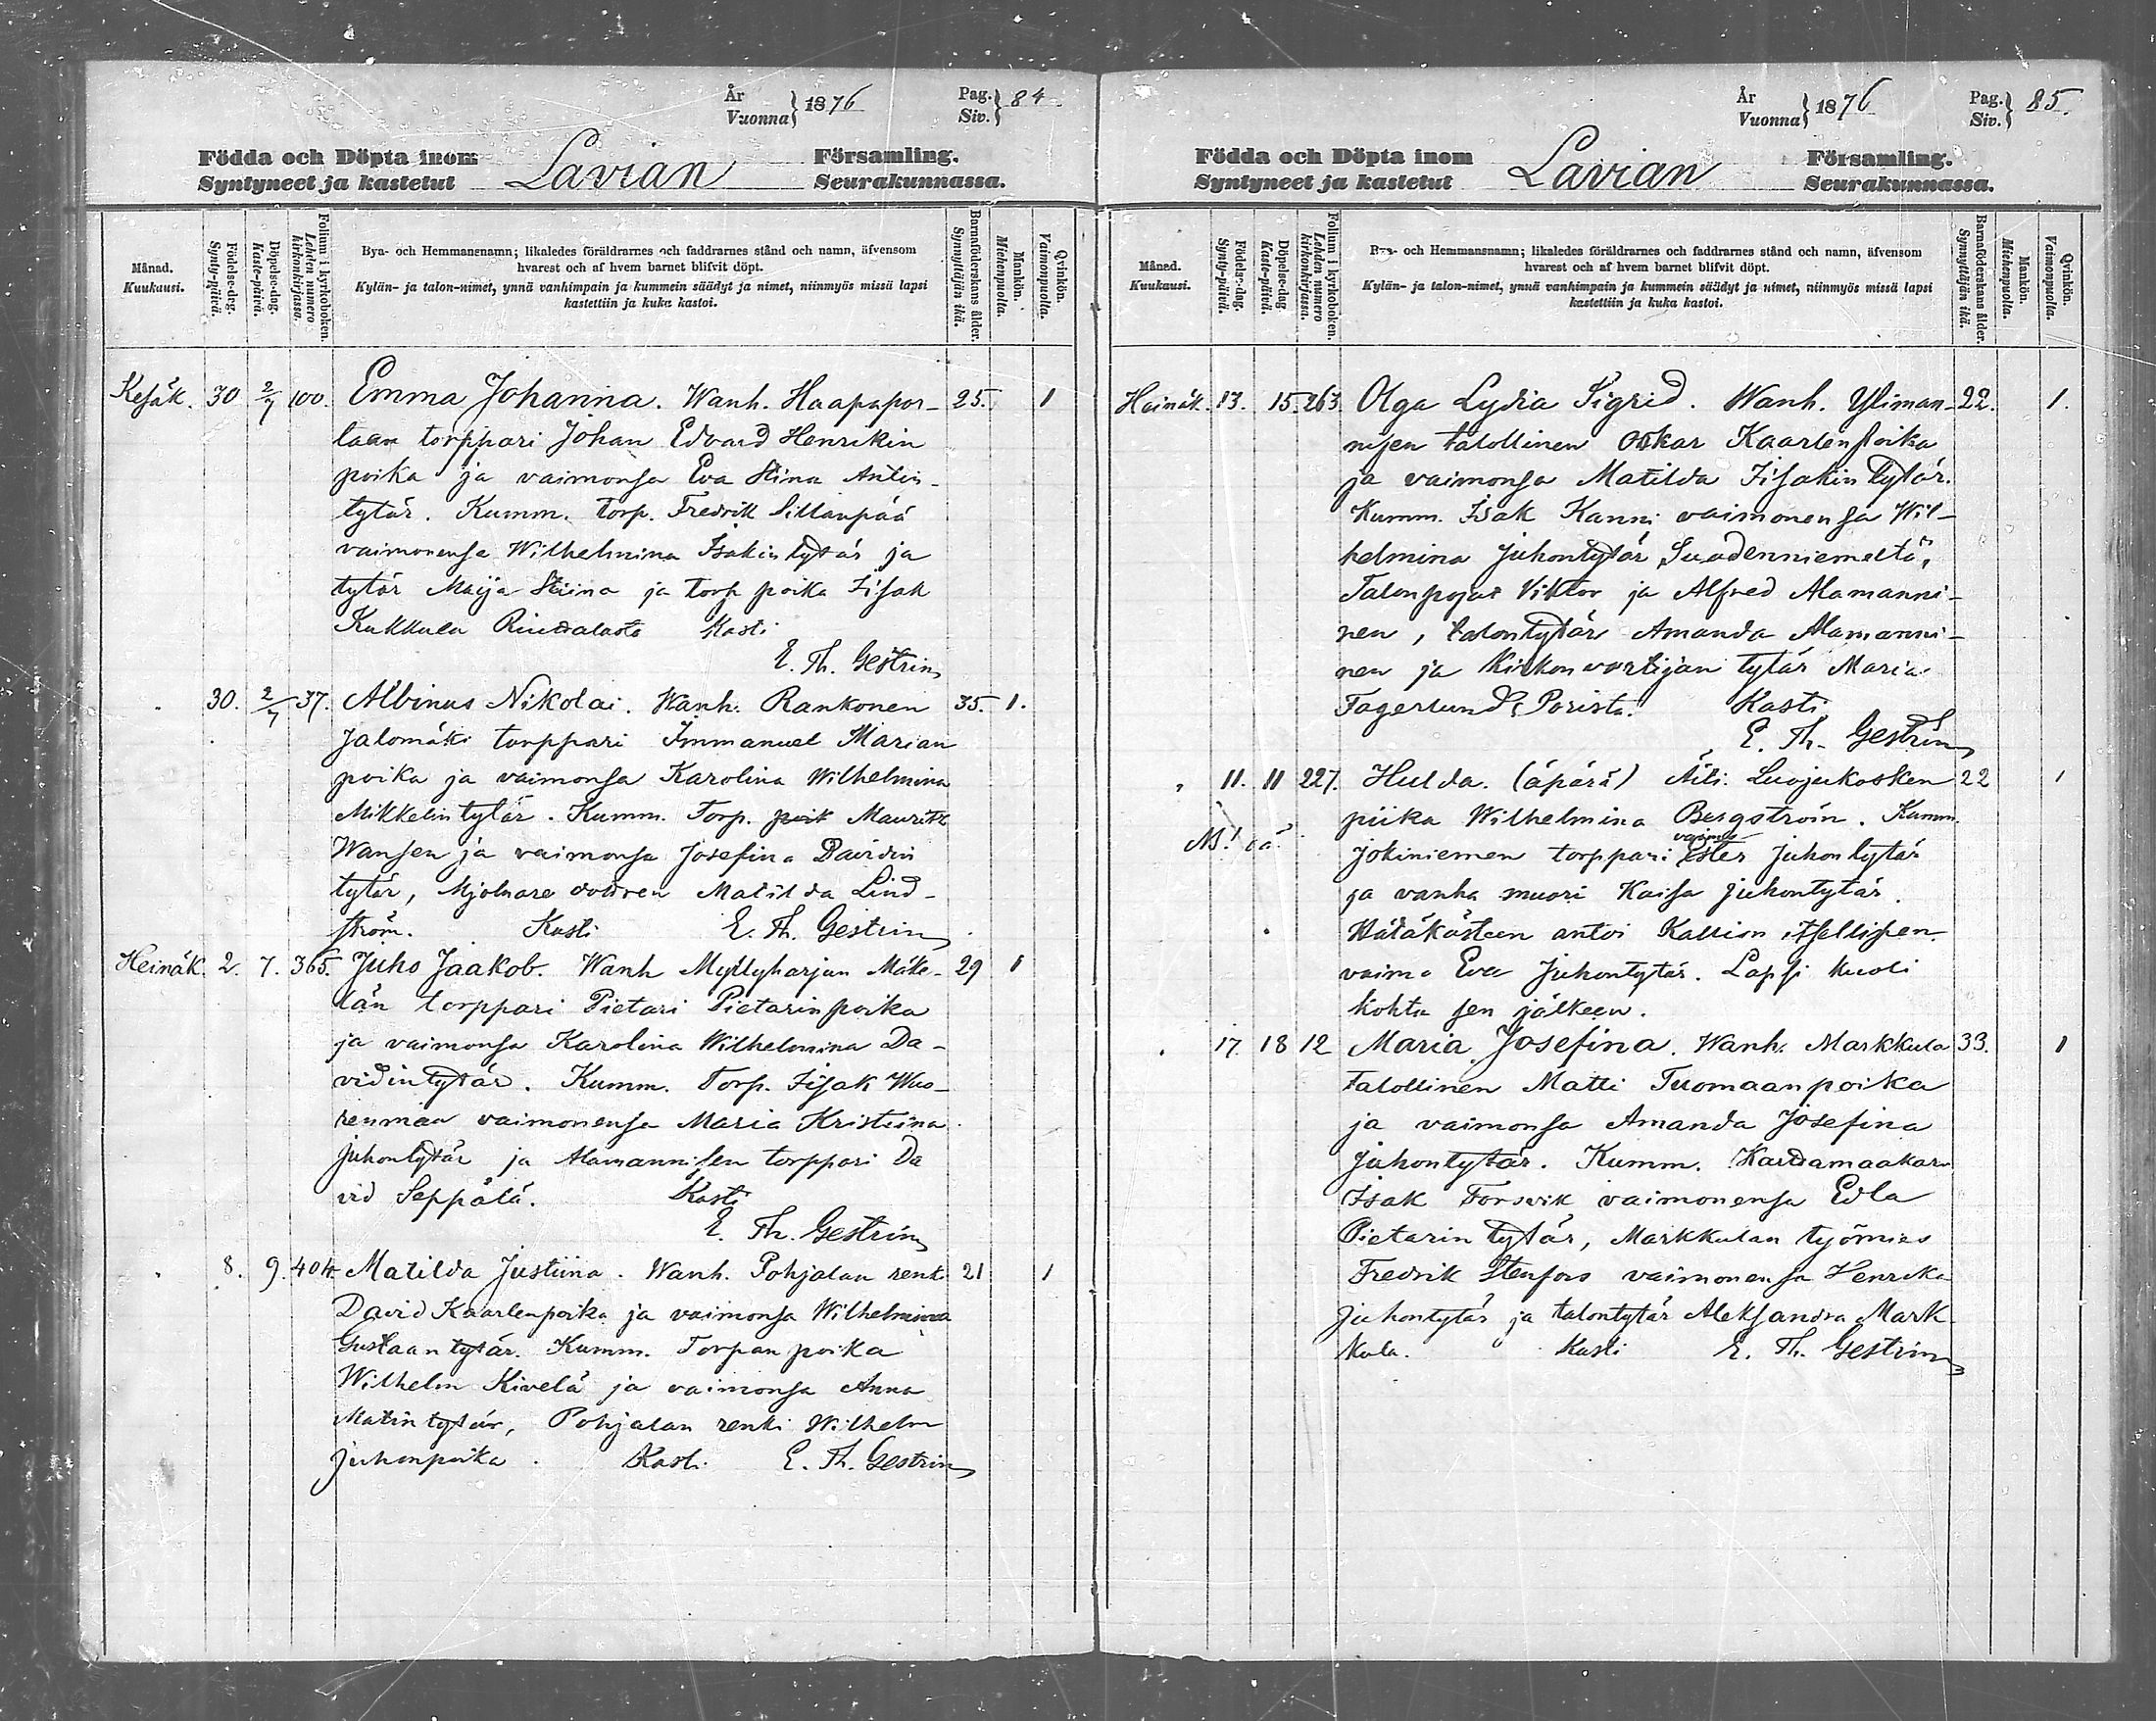 År
Vuonna } 1876
Pag.
Siv. } 84
Födda och Döpta inom
Syntyneet ja kastetut
Lavian
Församling.
Seurakunnassa.
Månad.
Kuukausi.
Födelse-dag.
Synty-päivä.
Döpelse-dag.
Kaste-päivä.
Folium i kyrkoboken.
Lehden numero kirkonkirjassa.
Bya- och Hemmansnamn; likaledes föräldrarnes och faddrarnes stånd och namn, äfvensom
hvarest och af hvem barnet blifvit döpt.
Kylän- ja talon-nimet, ynnä vanhimpain ja kummein säädyt ja nimet, niinmyös missä lapsi
kastettiin ja kuka kastoi.
Barnaföderskans ålder.
Synnyttäjän ikä.
Mankön.
Miehenpuolia.
Qvinkön.
Vaimonpuolia.
Kesäk. 30 2/7 100. Emma Johanna. Wanh. Haapapor- 25. 1
laan torppari Johan Edvard Henrikin
poika ja vaimonsa Eva Stina Antin-
tytär. Kumm. torp. Fredrik Sillanpää
vaimonensa Wilhelmina Isakintytär ja
tytär Maija Stiina ja torp poika Iisak
Kukkula Kasti
E. Th. Gestrin
30. 2/7 37. Albinus Nikolai. Wanh. Rankonen 35. 1.
Jalomäki torppari Immanuel Marian
poika ja vaimonsa Karolina Wilhelmina
Mikkelintytär. Kumm. Torp. Mauritz
Wansen ja vaimonsa Josefina Davidin
tytär, Mjolnare dottren Matilda Lind-
ström. Kasti E. Th. Gestrin
Heinäk. 2. 7. 365. Juho Jaakob. Wanh Myllyharjun Mäke- 29 1
län torppari Pietari Pietarinpoika
ja vaimonsa Karolina Wilhelmina Da-
vidintytär. Kumm. Torp. Iisak Wuo-
renmaa vaimonensa Maria Kristiina
Juhontytär ja Alamannisen torppari Da
vid Seppälä. Kasti
E. Th. Gestrin
8. 9. 404. Matilda Justiina. Wanh. Pohjalan renki 21 1
David Kaarlenpoika ja vaimonsa Wilhelmina
Gustaantytär. Kumm. Torpan poika
Wilhelm Kivelä ja vaimonsa Anna
Matintytär, Pohjalan renki Wilhelm
Juhonpoika. Kasti. E. Th. Gestrin
År
Vuonna } 1876
Pag.
Siv. } 85.
Födda och Döpta inom
Syntyneet ja kastetut
Lavian
Församling.
Seurakunnassa.
Månad.
Kuukausi.
Födelse-dag.
Synty-päivä.
Döpelse-dag
Kaste-päivä.
Folium i kyrkoboken.
Lehden numero kirkonkirjassa.
Bya- och Hemmansnamn; likaledes föräldrarnes och faddrarnes stånd och namn, äfvensom
hvarest och af hvem barnet blifvit döpt.
Kylän- ja talon-nimet, ynnä vanhimpain ja kummein säädyt ja nimet, niinmyös missä lapsi
kastettiin ja kuka kastoi.
Barnaföderskans ålder.
Synnyttäjän ikä.
Mankön.
Miehenpuolia.
Qvinkön.
Vaimonpuolia.
Heinäk. 13. 15. 263. Olga Lydia Sigrid. Wanh. Yliman- 22. 1.
nisen talollinen Oskar Kaarlenpoika
ja vaimonsa Matilda Iisakintytär.
Kumm. Isak Kanni vaimonensa Wil-
helmina Juhontytär Suodenniemeltä,
Talonpojat Viktor ja Alfred Alamanni-
nen, talontytär Amanda Alamanni-
nen ja Kirkonvartijan tytär Maria
Fagerlund Porista. Kasti
E. Th. Gestrin
11. 11 227. Hulda. (äpärä) Äiti. Luojukosken 22 1
piika Wilhelmina Bergström. Kumm.
vaimo
Jokiniemen torppari Ester Juhontytär
ja vanha muori Kaisa Juhontytär.
Hätäkasteen antoi Kallion itsellisen
vaimo Eva Juhontytär. Lapsi kuoli
kohta sen jälkeen.
17. 18 12 Maria Josefina. Wanh. Markkula 33. 1
talollinen Matti Tuomaanpoika
ja vaimonsa Amanda Josefina
Juhontytär. Kumm. Kardamaakari
Isak Forsvik vaimonensa Edla
Pietarintytär, Markkulan työmies
Fredrik Stenfors vaimonensa Henrika
Juhontytär ja talontytär Aleksandra Mark-
kula. Kasti E. Th. Gestrin